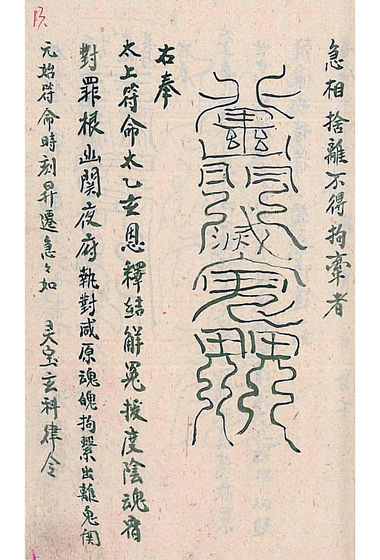 急相捨離不得拘牽者
右奉
太上符命太乙玄恩釋結解冤拔度陰魂宿
對罪根幽関夜府執對咸原魂魄拘繫出離鬼関
元始符命時刻昇遷急々如 灵宝玄科律令